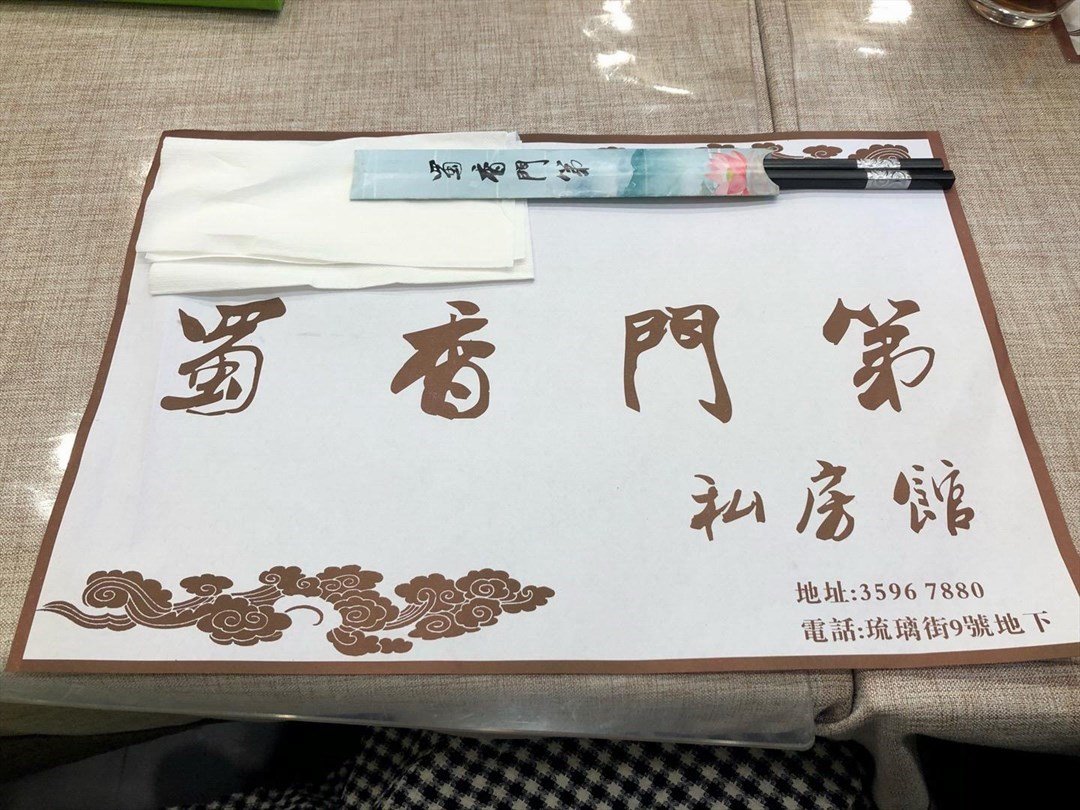 蜀香門第
蜀香門第
私房館
地址:3596 7880
電話:琉璃街9號地下